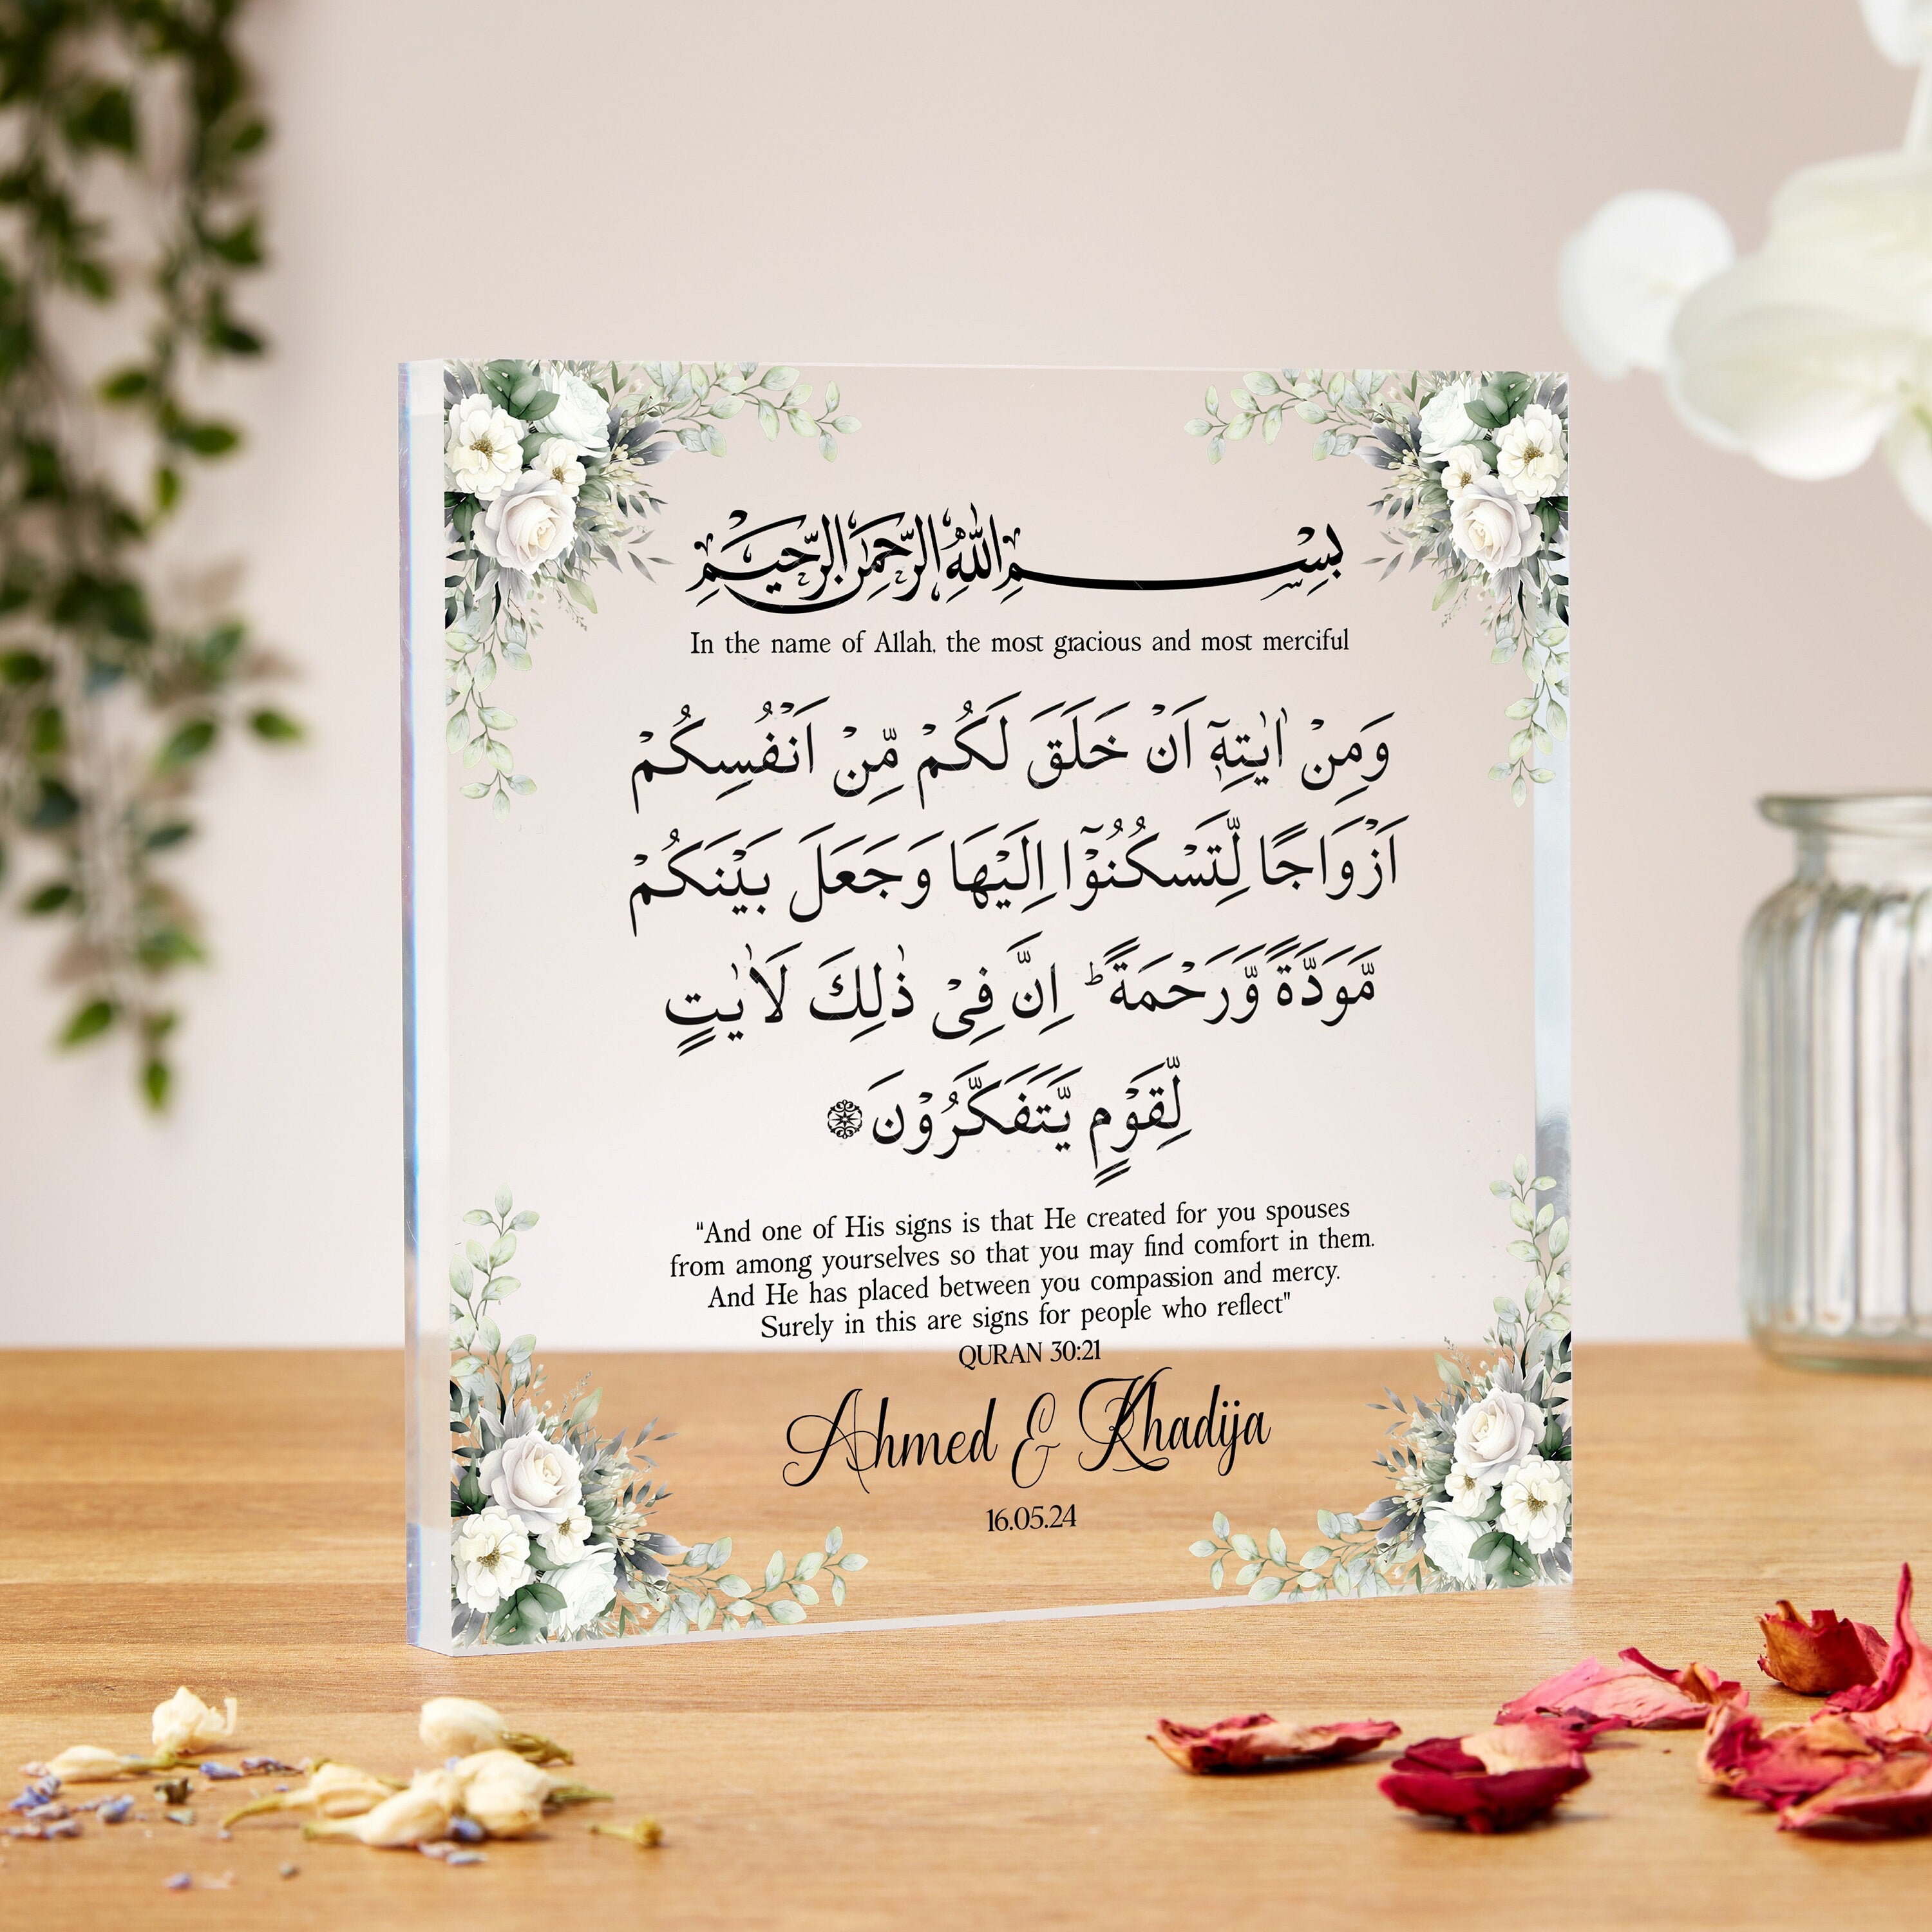 بِسْمِ اللهِ الرَّحْمٰنِ الرَّحِيْمِ
In the name of Allah, the most gracious and most merciful
وَمِنْ اٰيٰتِهٖٓ اَنْ خَلَقَ لَكُمْ مِّنْ اَنْفُسِكُمْ
اَزْوَاجًا لِّتَسْكُنُوْٓا اِلَيْهَا وَجَعَلَ بَيْنَكُمْ
مَّوَدَّةً وَّرَحْمَةً ؕ اِنَّ فِيْ ذٰلِكَ لَاٰيٰتٍ
لِّقَوْمٍ يَّتَفَكَّرُوْنَ
"And one of His signs is that He created for you spouses
from among yourselves so that you may find comfort in them.
And He has placed between you compassion and mercy.
Surely in this are signs for people who reflect"
QURAN 30:21
Ahmed & Khadija
16.05.24